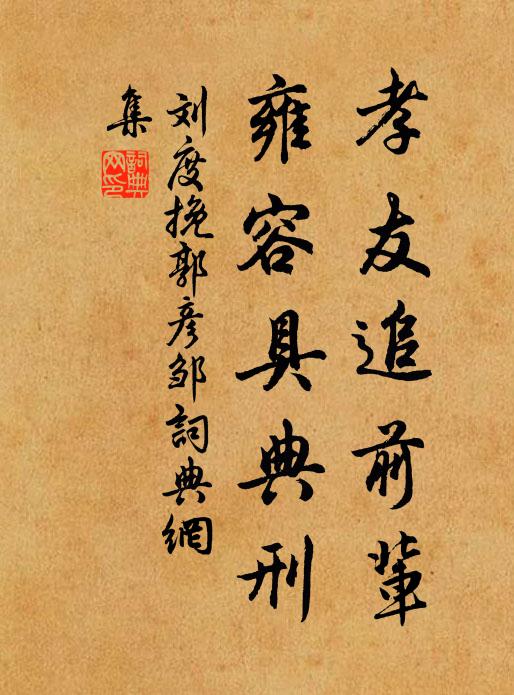 孝友追前輩
雍容具典刑
刘度挽郭彦邹詞典網
集
詞典網印